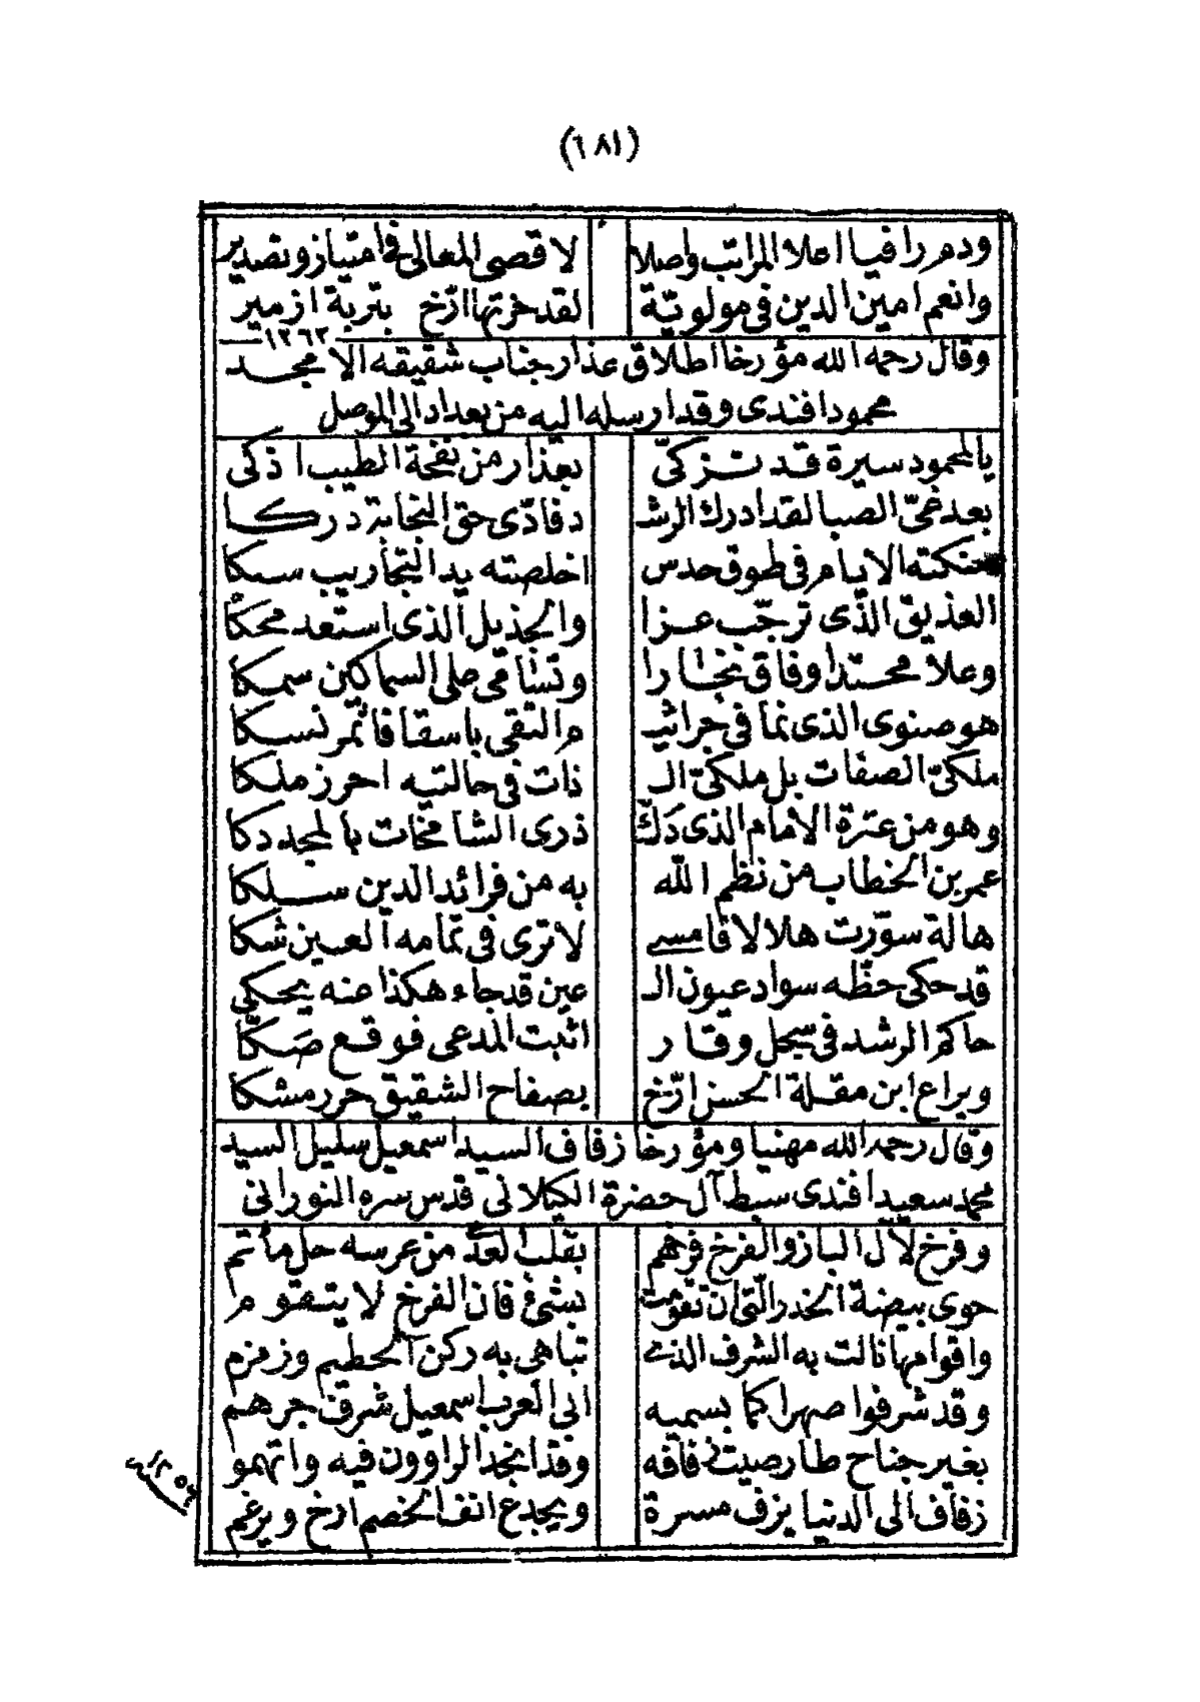 (٦٨١)
ودم راقيا اعلا المراتب واصلا لاقصى المعالى فى امتياز وتصدير
وانعم امين الدين فى مولويّة لقد حزتها ارّخ بتربة ازمير
١٢٦٣
وقال رحمه الله مؤرخا اطلاق عذار جناب شقيقه الامجد
محمود افندى وقد ارسله اليه من بغداد الى الموصل
يالمحمود سيرة قد تزكىّ بعذار من نفحة الطيب اذكى
بعد غىّ الصبا لقد ادرك الرشـ دفادّى حق النجابة دركا
حنكته الايام فى طوق حدس اخلصته يد التجاريب سبكا
العذيق الذّى ترجّب عزا والجذيل الذى استعد محكّا
وعلا محتدا وفاق نجارا وتسامى على السماكين سمكا
هو صنوى الذى نما فى جراثيـ م التقى باسقا فاثمر نسكا
ملكىّ الصفات بل ملكىّ الـ ذات فى حالتيه احرز ملكا
وهو من عترة الامام الذى دكّ ذرى الشامخات بالمجد دكا
عمر بن الخطاب من نظم الله به من فرائد الدين سلكا
هالة سوّرت هلالا قامسى لاترى فى تمامه العين شكا
قد حكى حظّه سواد عيون الـ عين قد جاء هكذا عنه يحكى
حاكم الرشد فى سجل وقار اثبت المدعى فوقع صكّا
ويراع ابن مقلة الحسن ارّخ بصفاح الشقيق حرر مشكا
وقال رحمه الله مهنيا ومؤرخا زفاف السيد اسمعيل سليل السيد
محمد سعيد افندى سبط آل حضرة الكيلانى قدس سره النورانى
وفرخ لآل الباز والفرخ فرخهم بقلب العدّ من عرسه حل مأتم
حوى بيضة الخدر التى ان تقومت بشئ فان الفرخ لا يتقوم
واقوامها نالت به الشرف الذى تباهى به ركن الحطيم وزمزم
وقد شرفوا صهرا كما بسميه ابى العرب اسمعيل شرق جرهم
بغير جناح طار صيت زفافه وقد انجد الراوون فيه واتهموا
زفاف الى الدنيا يزف مسرة ويجدع انف الخصم ارخ ويرغم